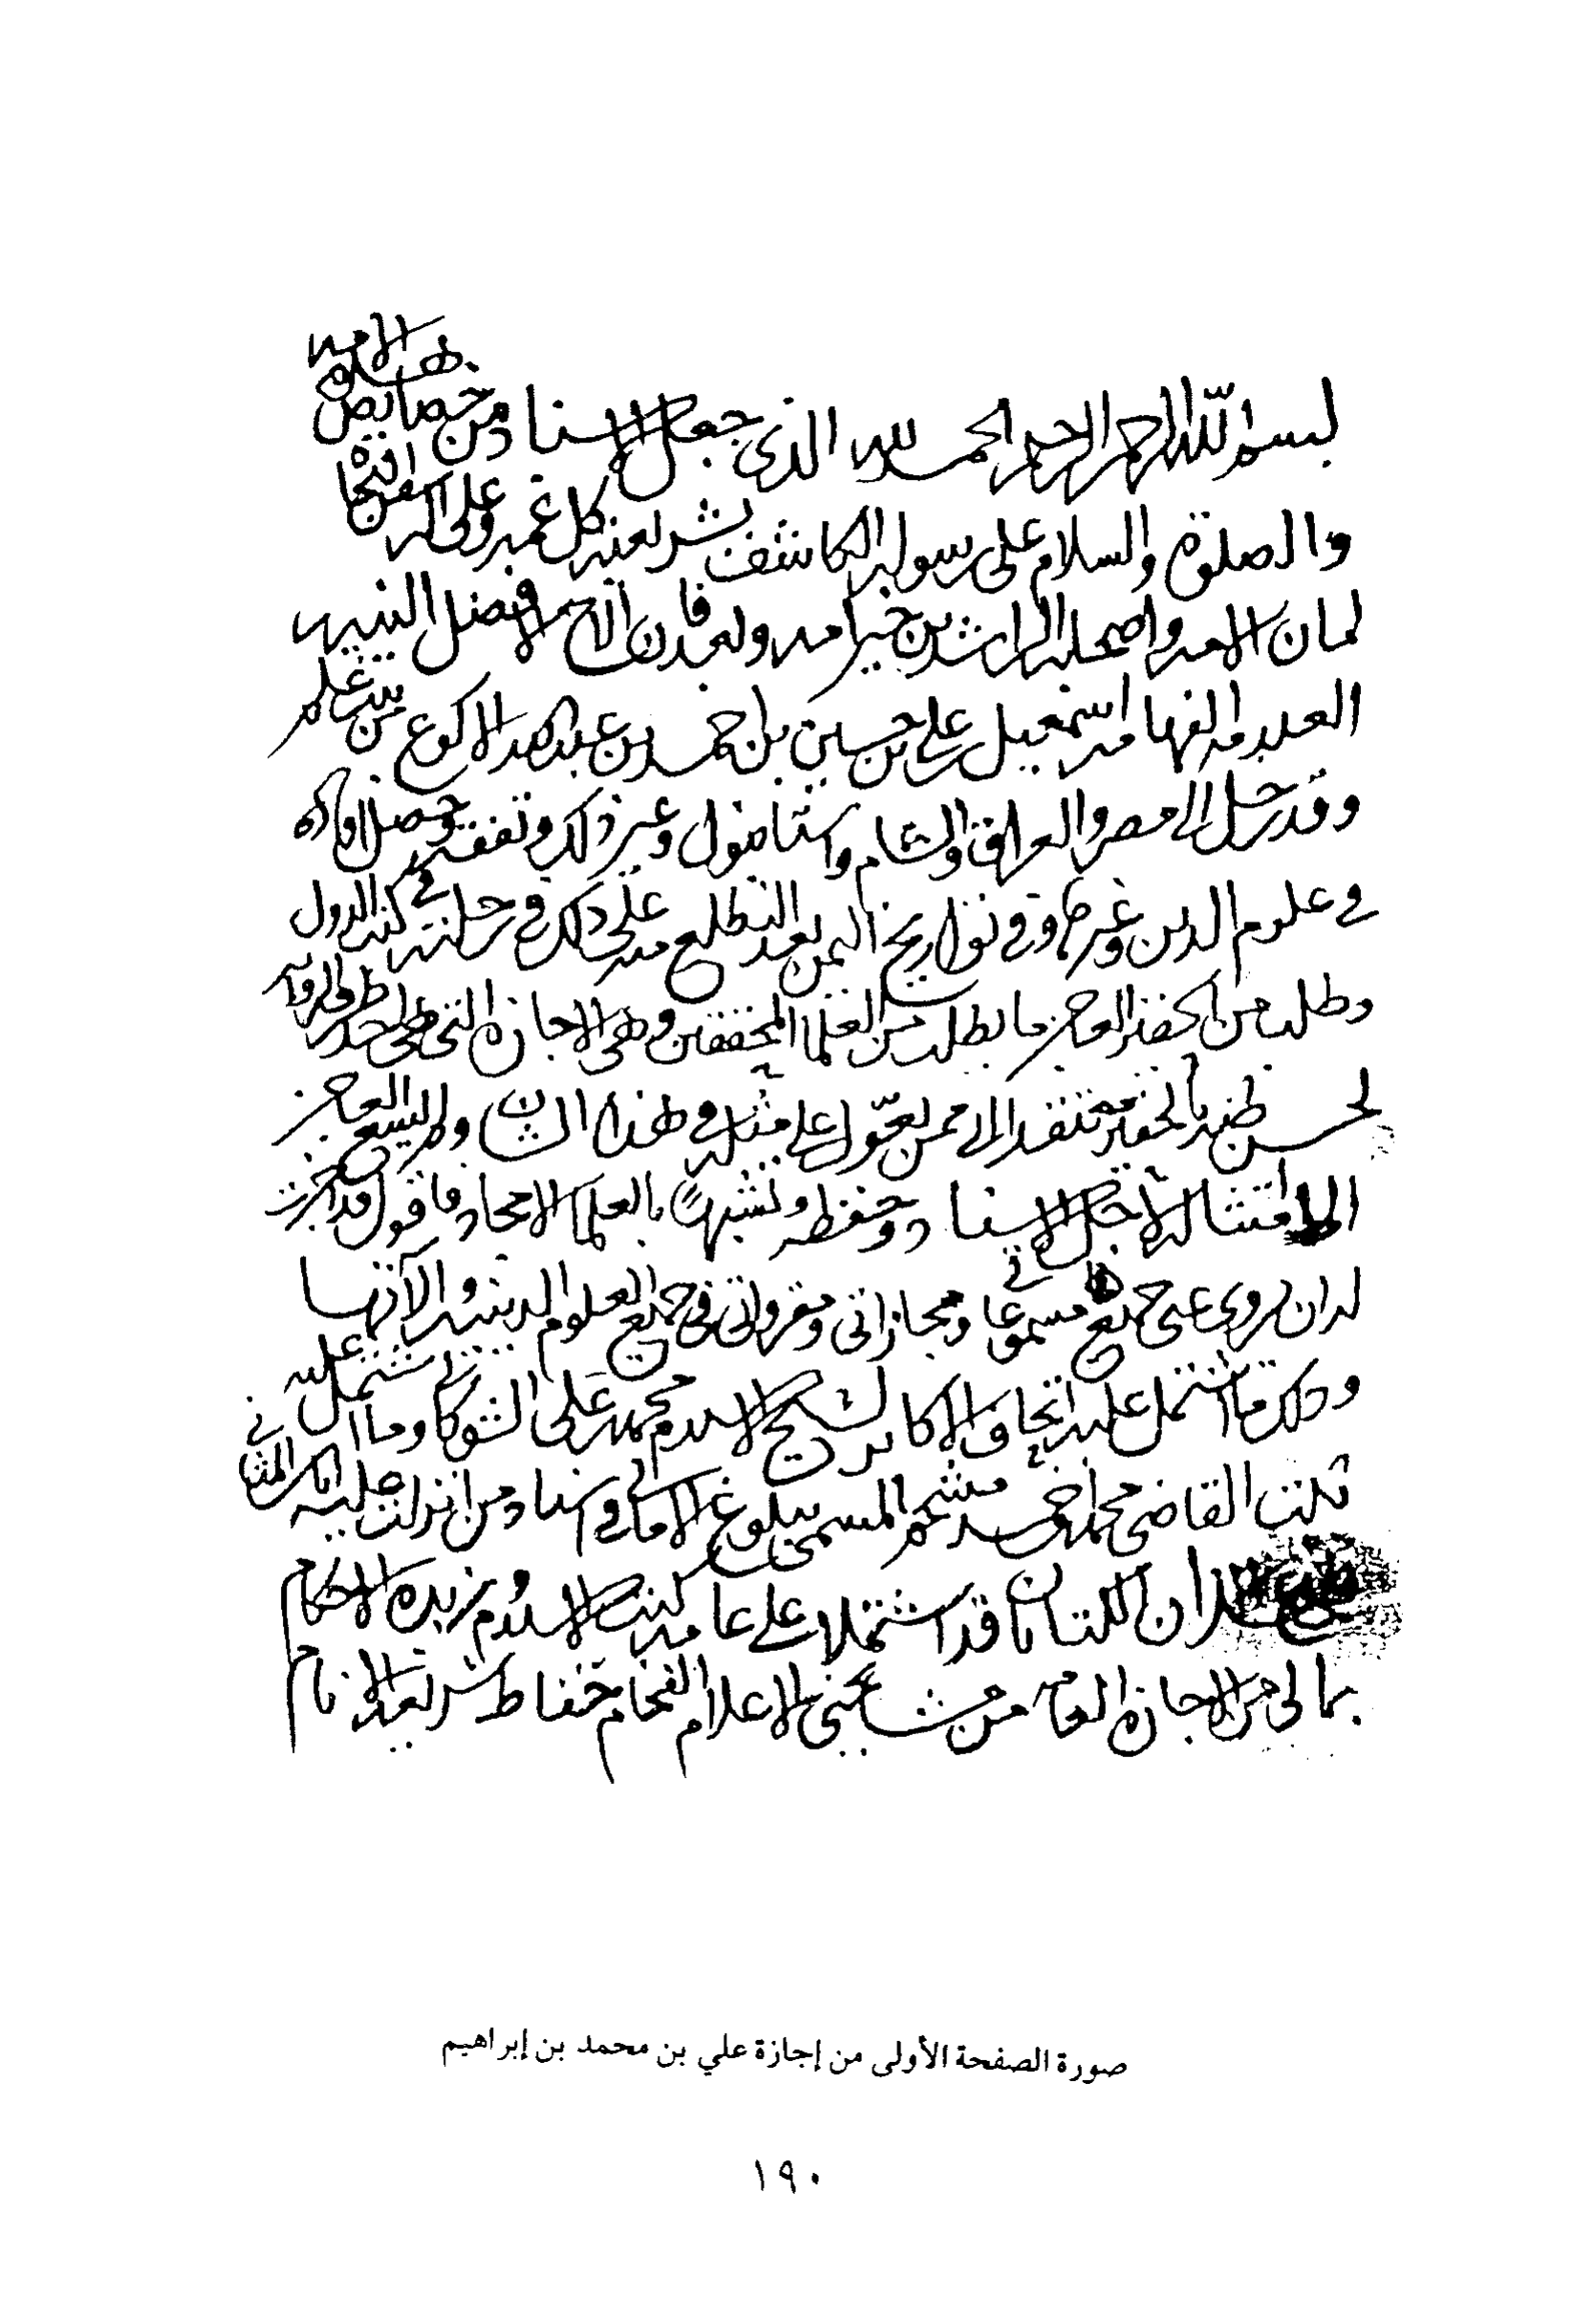 بسم الله الرحمن الرحيم الحمد لله الذي جعل الاسناد من خصايص هذه الامه
والصلوة والسلام على رسوله الكاشف بشريعته كل غمه وعلى آله
امان الامه واصحابه الراشدين خير امه وبعد فان الاخ الافضل النبيه
العلامه الفهامه اسمعيل بن علي بن حسين بن احمد بن عبدالله الاكوع
وقد رحل الى مصر والعراق والشام واستانبول وغير ذلك وتفقه وحصل
في علوم الدين وغيرها وفي تواريخ اليمن بعد التطلع منه على ذلك في رحلته كتب الدول
وطلب من الحقير العاجز ما يطلب من العلما المحققين وهي الاجازه التي هي احد طرق الروايه
لحسن ظنه بالحقير معتقدا اني ممن يعول على مثله في هذا الشان ولم يسع العاجز
الا امتثاله لاجل الاسناد وحفظه وتشبها بالعلما الامجاد فاقول قد اجزت
له ان يروي عني جميع مسموعاتي ومجازاتي ومقرواتي في جميع العلوم الدينيه والآتها
وكذلك ما اشتمل عليه اتحاف الاكابر لشيخ الاسلام محمد بن علي الشوكاني وما اشتمل عليه
ثبت القاضي محمد بن احمد مشحم المسمى بلوغ الاماني في اسناد من انزلت عليه المثاني
ان الكتابان قد اشتملا على عامه كتب الاسلام وزبده الاحكام
بما لي من الاجازه العامه من مشايخي الاعلام الفخام حفاظ شريعه الانام
صورة الصفحة الأولى من إجازة علي بن محمد بن إبراهيم
١٩٠